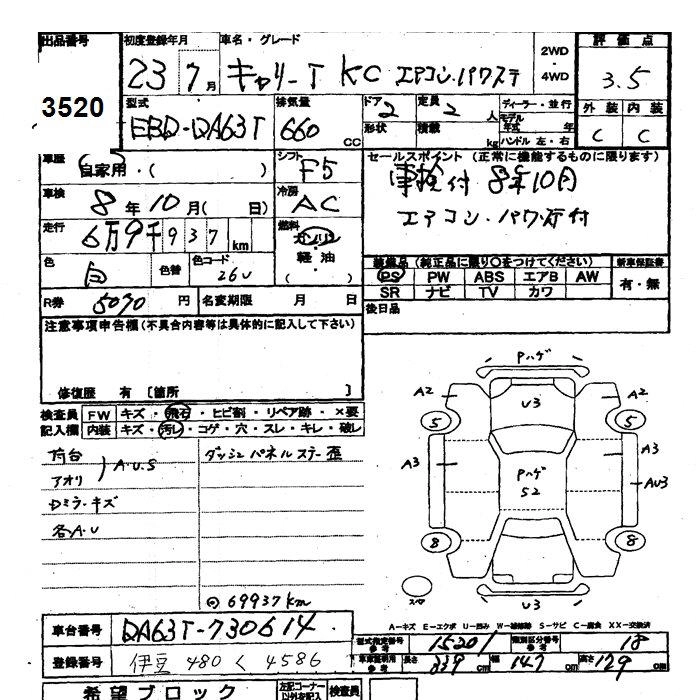 出品番号 初度登録年月 車名・グレード 2WD・4WD 評価点
3520 23 7月 キャリーT KC エアコン.パワステ 3.5
型式 排気量 ドア 定員 ディーラー・並行 外装 内装
EBD-DA63T 660 CC 2 2 人 モデル年式 年 C C
形状 積載 kg ハンドル 左・右
車歴 自家用・( ) シフト F5 セールスポイント (正常に機能するものに限ります)
車検 8年10月( 日) 冷房 AC 車検付 8年10月
走行 6万9千937km 燃料 ガソリン・軽油 ( ) エアコン.パワステ付
色 白 色替 色コード 26U
装備品 (純正品に限り〇をつけてください) 新車保証書
PS PW ABS エアB AW 有・無
SR ナビ TV カワ
R券 5070円 名変期限 月 日 後日品
注意事項申告欄(不具合内容等は具体的に記入して下さい)
修復歴 有 [箇所 ]
検査員 FW キズ・飛石・ヒビ割・リペア跡・×要
記入欄 内装 キズ・汚レ・コゲ・穴・スレ・キレ・破レ
荷台 ダッシュパネルステー歪
アオリ ) A.U.S
Dミラーキズ
各A.U
69937km
Pハゲ
A2 U3 A2
5 5
A3 A3
Pハゲ AU3
S2
8 8
スペア U3
A-キズ E-エクボ U-凹み W-補修跡 S-サビ C-腐食 XX-交換済
車台番号 DA63T-730614 型式指定番号 15201 類別区分番号 18
登録番号 伊豆 480 く 4586 長さ 339cm 幅 147cm 高さ 179cm
希望ブロック 検査員